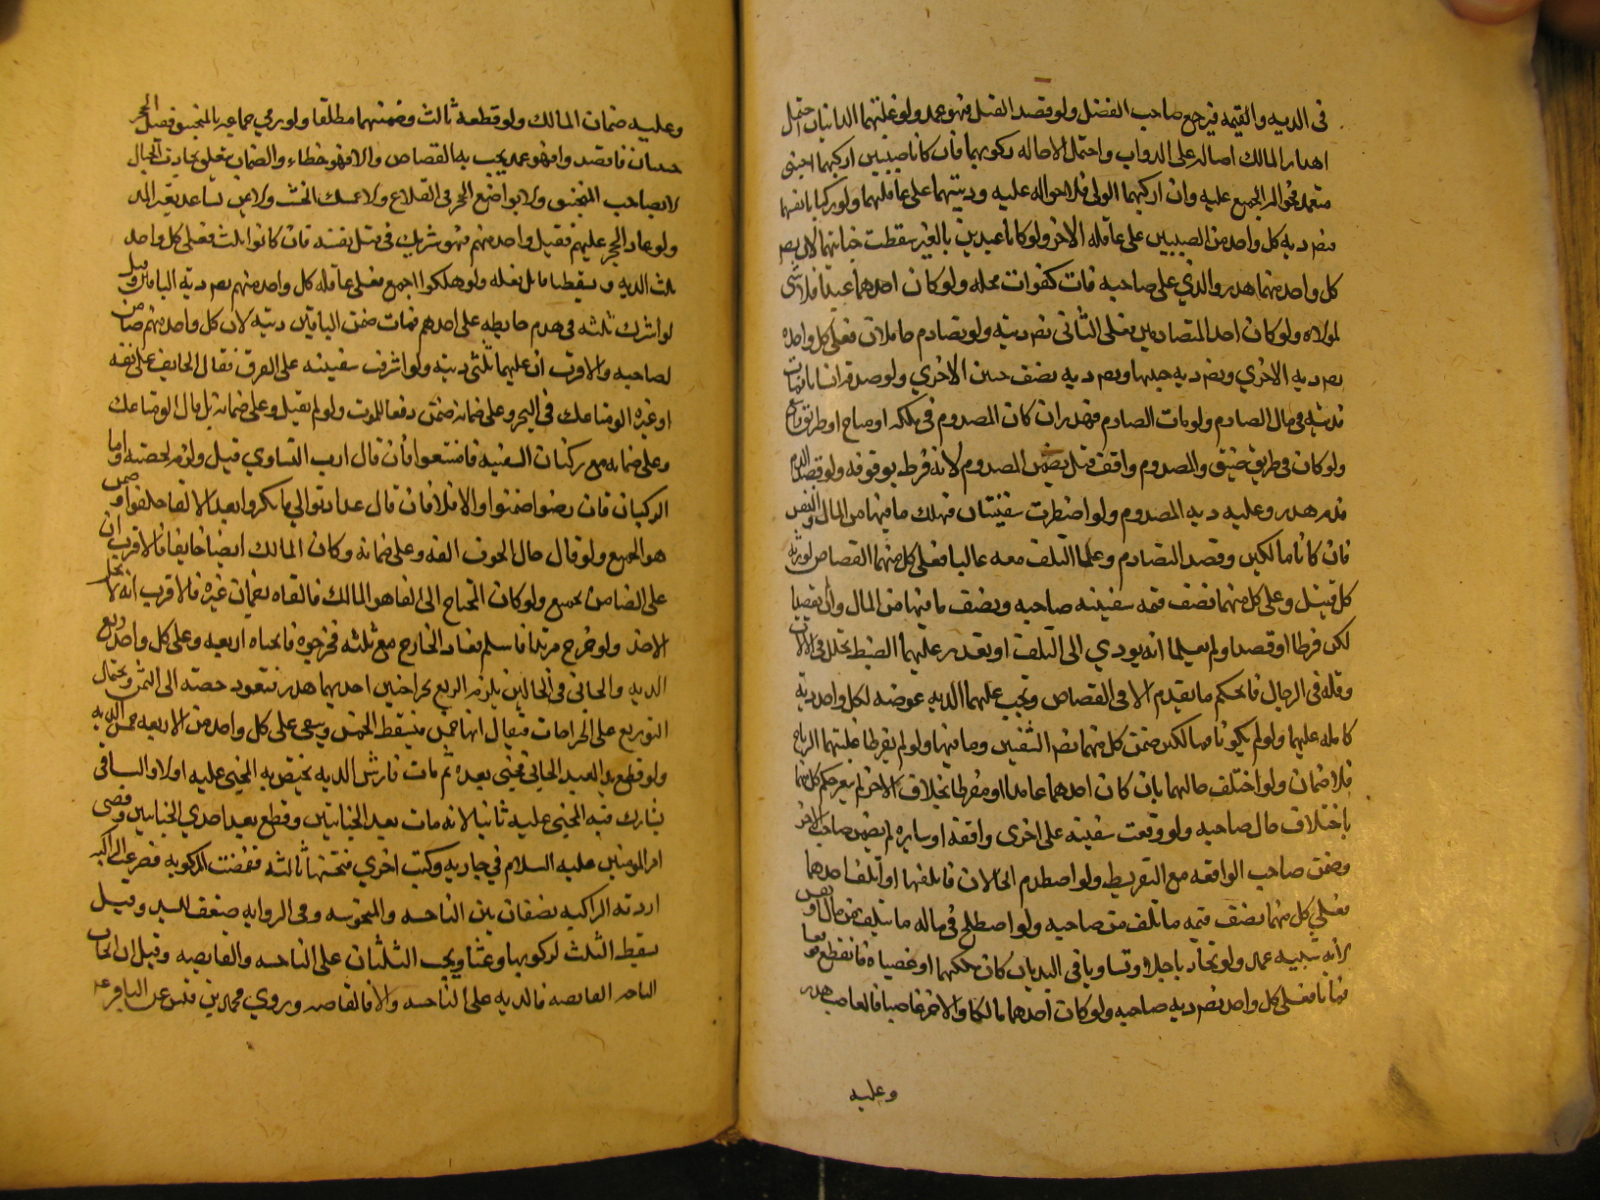 فى الديه والقيمه فيرجع صاحب الفضل ولو قصد القتل فهو عمد ولو غلبتهما الدابتان احتمل
اهدار المالك احاله على الدواب واحتمل الاحاله ركوبهما فان كانا صبيين اركبهما اجنبى
متعمد فحوالة الجميع عليه وان اركبهما الولى فلا حواله عليه وديتهما على عاقلتهما ولو ركبا بانفسهما
فنصف ديه كل واحد من الصبيين على عاقله الاخر ولو كانا عبدين بالغين سقطت جنايتهما لان نصف
كل واحد منهما هدر والذي على صاحبه فات كفوات محله ولو كان احدهما عبدا فلا شى
لمولاه ولو كان احد المتصادمين فعلى الثانى نصف ديته ولو تصادم حاملان فعلى كل واحده
نصف ديه الاخرى ونصف ديه جنينها ونصف ديه نصف جنين الاخرى ولو صدم انسانا فمات
فديته فى مال الصادم ولو مات الصادم فهدر ان كان المصدوم فى ملكه او مباح او طريق واسع
ولو كان فى طريق ضيق والمصدوم واقف قيل يضمن المصدوم لانه فرط بوقوفه ولو قصد الصدم
فدمه هدر وعليه ديه المصدوم ولو اصطدمت سفينتان فهلك ما فيهما من المال والنفس
فان كانا مالكين وقصد التصادم وعلما التلف معه غالبا فعلى كل منهما القصاص لورثه
كل قتيل وعلى كل منهما نصف قيمه سفينه صاحبه ونصف ما فيها من المال وان لم يقصدا
لكن فرطا او قصدا ولم يعلما انه يودي الى التلف او تعذر عليهما الضبط لخلل فى الالات
وقله فى الرجال فالحكم ما تقدم الا فى القصاص وتجب عليهما الديه عوضه لكل واحد ديه
كامله عليهما ولو لم يكونا مالكين ضمن كل منهما نصف السفينتين وما فيهما ولو لم يفرطا غلبتهما الرياح
فلا ضمان ولو اختلف حالهما بان كان احدهما عامدا او مفرطا بخلاف الاخر لم يتغير حكم كل منهما
باختلاف حال صاحبه ولو وقعت سفينه على اخرى واقفة او سايره لم يضمن صاحب الاخرى
وضمن صاحب الواقعه مع التفريط ولو اصطدم الحمالان فاتلفا او اتلف احدهما
فعلى كل منهما نصف قيمه ما تلف من صاحبه ولو اصطلح فى ماله ما يتلف من مال او نفس
لانه سببه عمد ولو تجاذبا حبلا وتساويا فى اليد بان كان ملكهما او غصباه فانقطع فوقعا
فماتا فعلى كل واحد نصف ديه صاحبه ولو كان احدهما مالكا والاخر غاصبا فالغاصب هدر
وعليه
وعليه ضمان المالك ولو قطعه ثالث ضمنهما مطلقا ولو رمى جماعه بالمنجنيق فقتل الحجر
انسانا فان قصدوا فهو عمد يجب به القصاص والا فهو خطاء والضمان يتعلق بجاذب الحبال
لا بصاحب المنجنيق ولا بواضع الحجر فى المقلاع ولا بممسك الخشب ولا بمن ساعد بغير المد
ولو عاد الحجر عليهم فقتل واحدا منهم فهو شريك فى قتل نفسه فان كانوا ثلثه فعلى كل واحد
ثلث الديه ويسقط ما قابل فعله ولو هلكوا اجمع فعلى عاقله كل واحد منهم نصف ديه الباقين وقيل
لو اشترك ثلثه فى هدم حايط فوقع على احدهم فمات ضمن الباقيان ديته لان كل واحد منهم ضامن
لصاحبه والاقرب ان عليهما ثلثى ديته ولو اشرف سفينه على الغرق فقال الخايف على نفسه
او غيره الق متاعك فى البحر وعلى ضمانه ضمن دفعا للموت ولو لم يقبل وعلى ضمانه بل قال الق متاعك
وعلى ضمانه مع ركبان السفينه فامتنعوا فان قال اردت التساوي قيل ولزمه بحصته واما
الركبان فان رضوا ضمنوا والا فلا فان قال عدا دتوا لي فانكروا بعد الالقا حلفوا وضمن
هو الجميع ولو قال حال الخوف القه وعلى ضمانه وكان المالك ايضا خايفا فالاقرب ان
على الضامن الجميع ولو كان المحتاج الى القاها هو المالك فالقاه بضمان غيره فالاقرب انه لا يحل له
الاخذ ولو خرج مرتدا فاسلم فعاد الخارج مع ثلثه فجرحوه فالجناه اربعه وعلى كل واحد ربع
الديه والجانى فى الحالين يلزمه الربع بجراحتين احديهما هدر فتعود حصته الى الثمن ويحتمل
التوزيع على الجراحات فيقال انها خمس فيسقط الخمس ويبقى على كل واحد من الاربعه خمس الديه
ولو قطع يد العبد الجانى فجنى بعده ثم مات فارش اليد يختص به المجنى عليه اولا والباقى
يشارك فيه المجنى عليه ثانيا لانه مات بعد الجنايتين وقطع بعد احدى الجنايتين وقضى
امير المومنين عليه السلام في جاريه ركبت اخرى فنخستها ثالثه فقمصت المركوبه فصرعت الراكبه
ان ديه الراكبه نصفان بين الناخسه والمنخوسه وفى الروايه ضعف السند وقيل
يسقط الثلث لركوبها عبثا ويجب الثلثان على الناخسه والقامصه وقيل ان الجات
الناخسه القامصه فالديه على الناخسه والا فالقامصه وروى محمد بن قيس عن الباقر ع